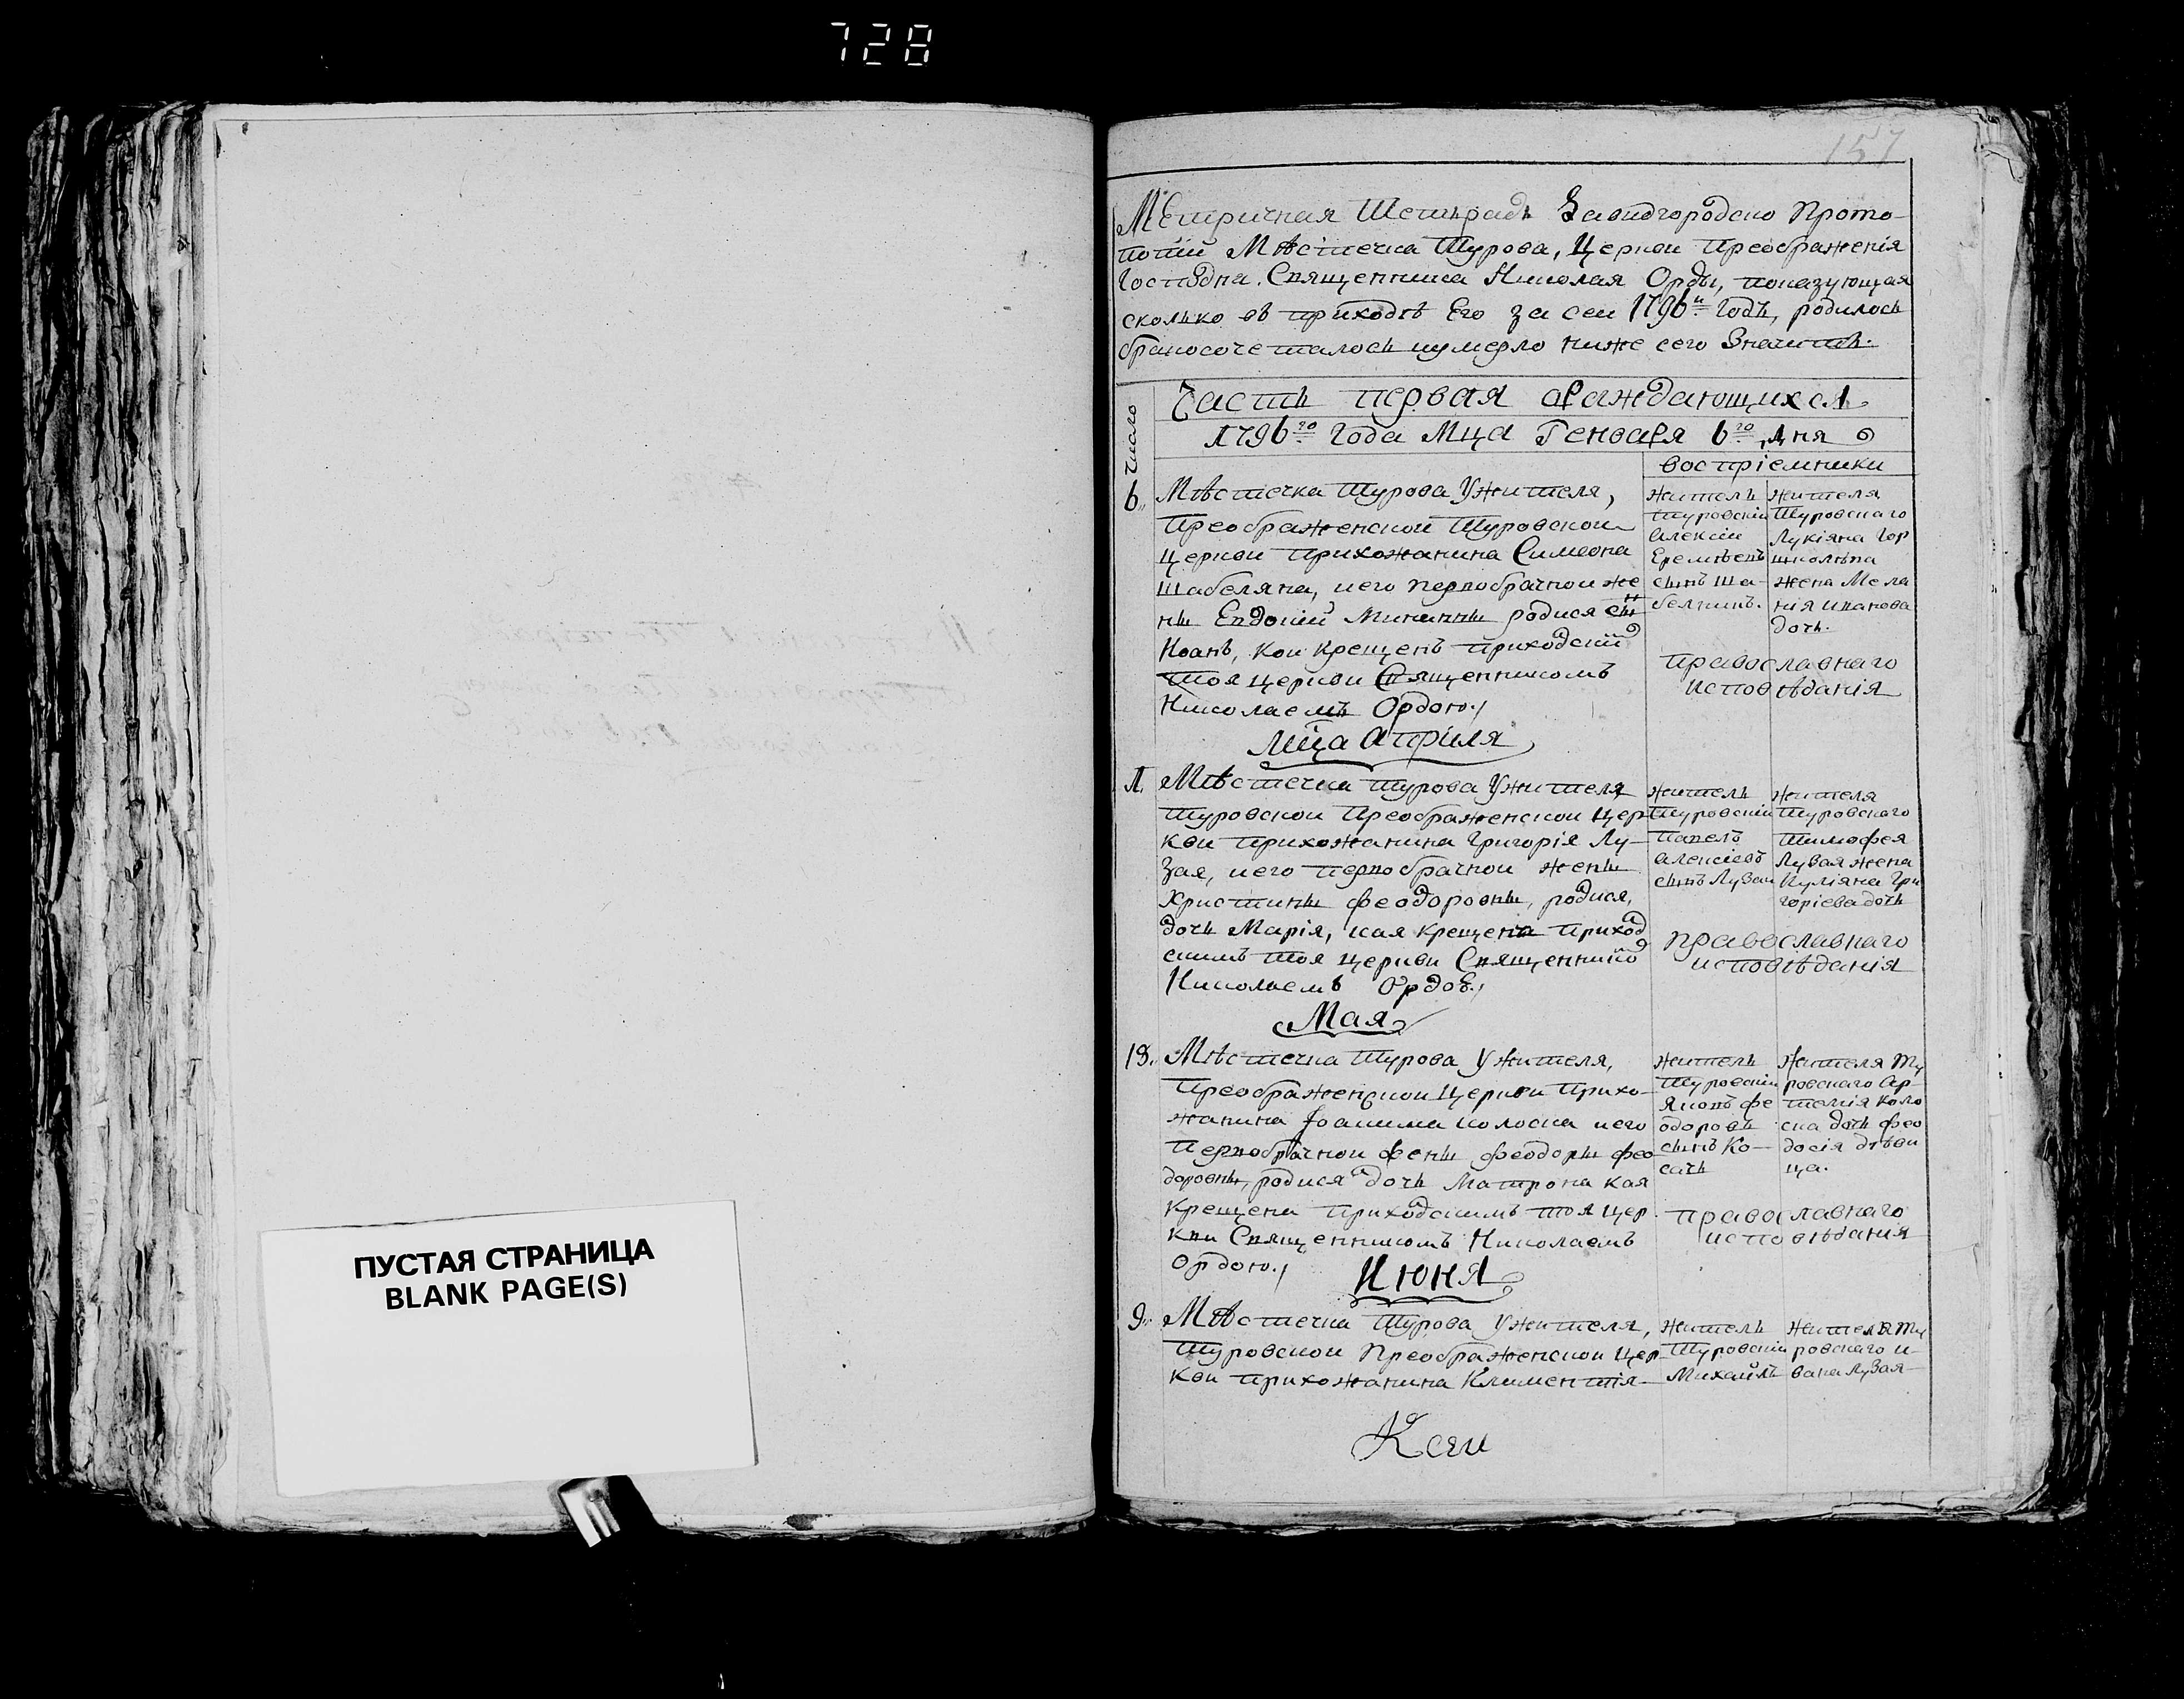 728
157
Метричная Тетрадь Давидгородско Прото-
попіи Мѣстечка Турова, Церкви Преображенія
Господня. Священника Николая Орды, показующая
сколько въ приходѣ Его за сеи 1796и Годъ, родилось
бракосочеталось иумерло ниже сего Значитъ.
Число
Часть первая ѡРаждающихся
1796го Года Мца Генваря 6го дня
воспріемники
6.
Мѣстечка Турова Ужителя,
Преображенскои Туровскои
Церкви Прихожанина Симеона
Шабеляна, иего первобрачнои же
ны Евдокіи Минины родися сынъ
Иоанъ, кои крещенъ приходскі
тоя церкви Священникомъ
Николаемъ Ордою.
житель
Туровскіи
Алексіи
Еремѣевъ
сынъ Ша-
белнинъ.
жителя
Туровскаго
Лукіяна Гор
школѣпа
жена Мела
нія Иванова
дочь.
православнаго
исповѣданія
Мца Априля
1.
Мѣстечка Турова Ужителя
Туровскои Преображенскои Цер
кви Прихожанина Григорія Лу-
зая, иего первобрачнои жены
Христины Феодоровны, родися,
дочь Марія, кая крещена Приход
скимъ тоя церкви Священнико
Николаемъ Ордою.
житель
Туровскіи
Павелъ
Алексіевъ
сынъ Лузаи
жителя
Туровскаго
Тимофея
Лузая жена
Иуліяна Гри
горіева дочь
православнаго
исповѣданія
Мая
18.
Мѣстечка Турова Ужителя,
Преображенскои Церкви Прихо-
жанина Іоакима колоска иего
Первобрачнои жены Феодоры Фео
доровны, родися дочь Матрона кая
крещена приходскимъ тоя цер
кви Священникомъ Николаемъ
Ордою.
житель
Туровскіи
Яковъ Фе
одоровъ
сынъ Ко-
сачь
жителя Ту
ровскаго Ар-
темія Коло
ска дочь Фео
досія дѣви
ца.
православнаго
исповѣданія
Июня
9.
Мѣстечка Турова Ужителя,
Туровскои Преображенскои Цер
кви прихожанина Климентія
житель
Туровскіи
Михаилъ
жителя Ту
ровскаго И-
вана Лузая
ПУСТАЯ СТРАНИЦА
BLANK PAGE(S)